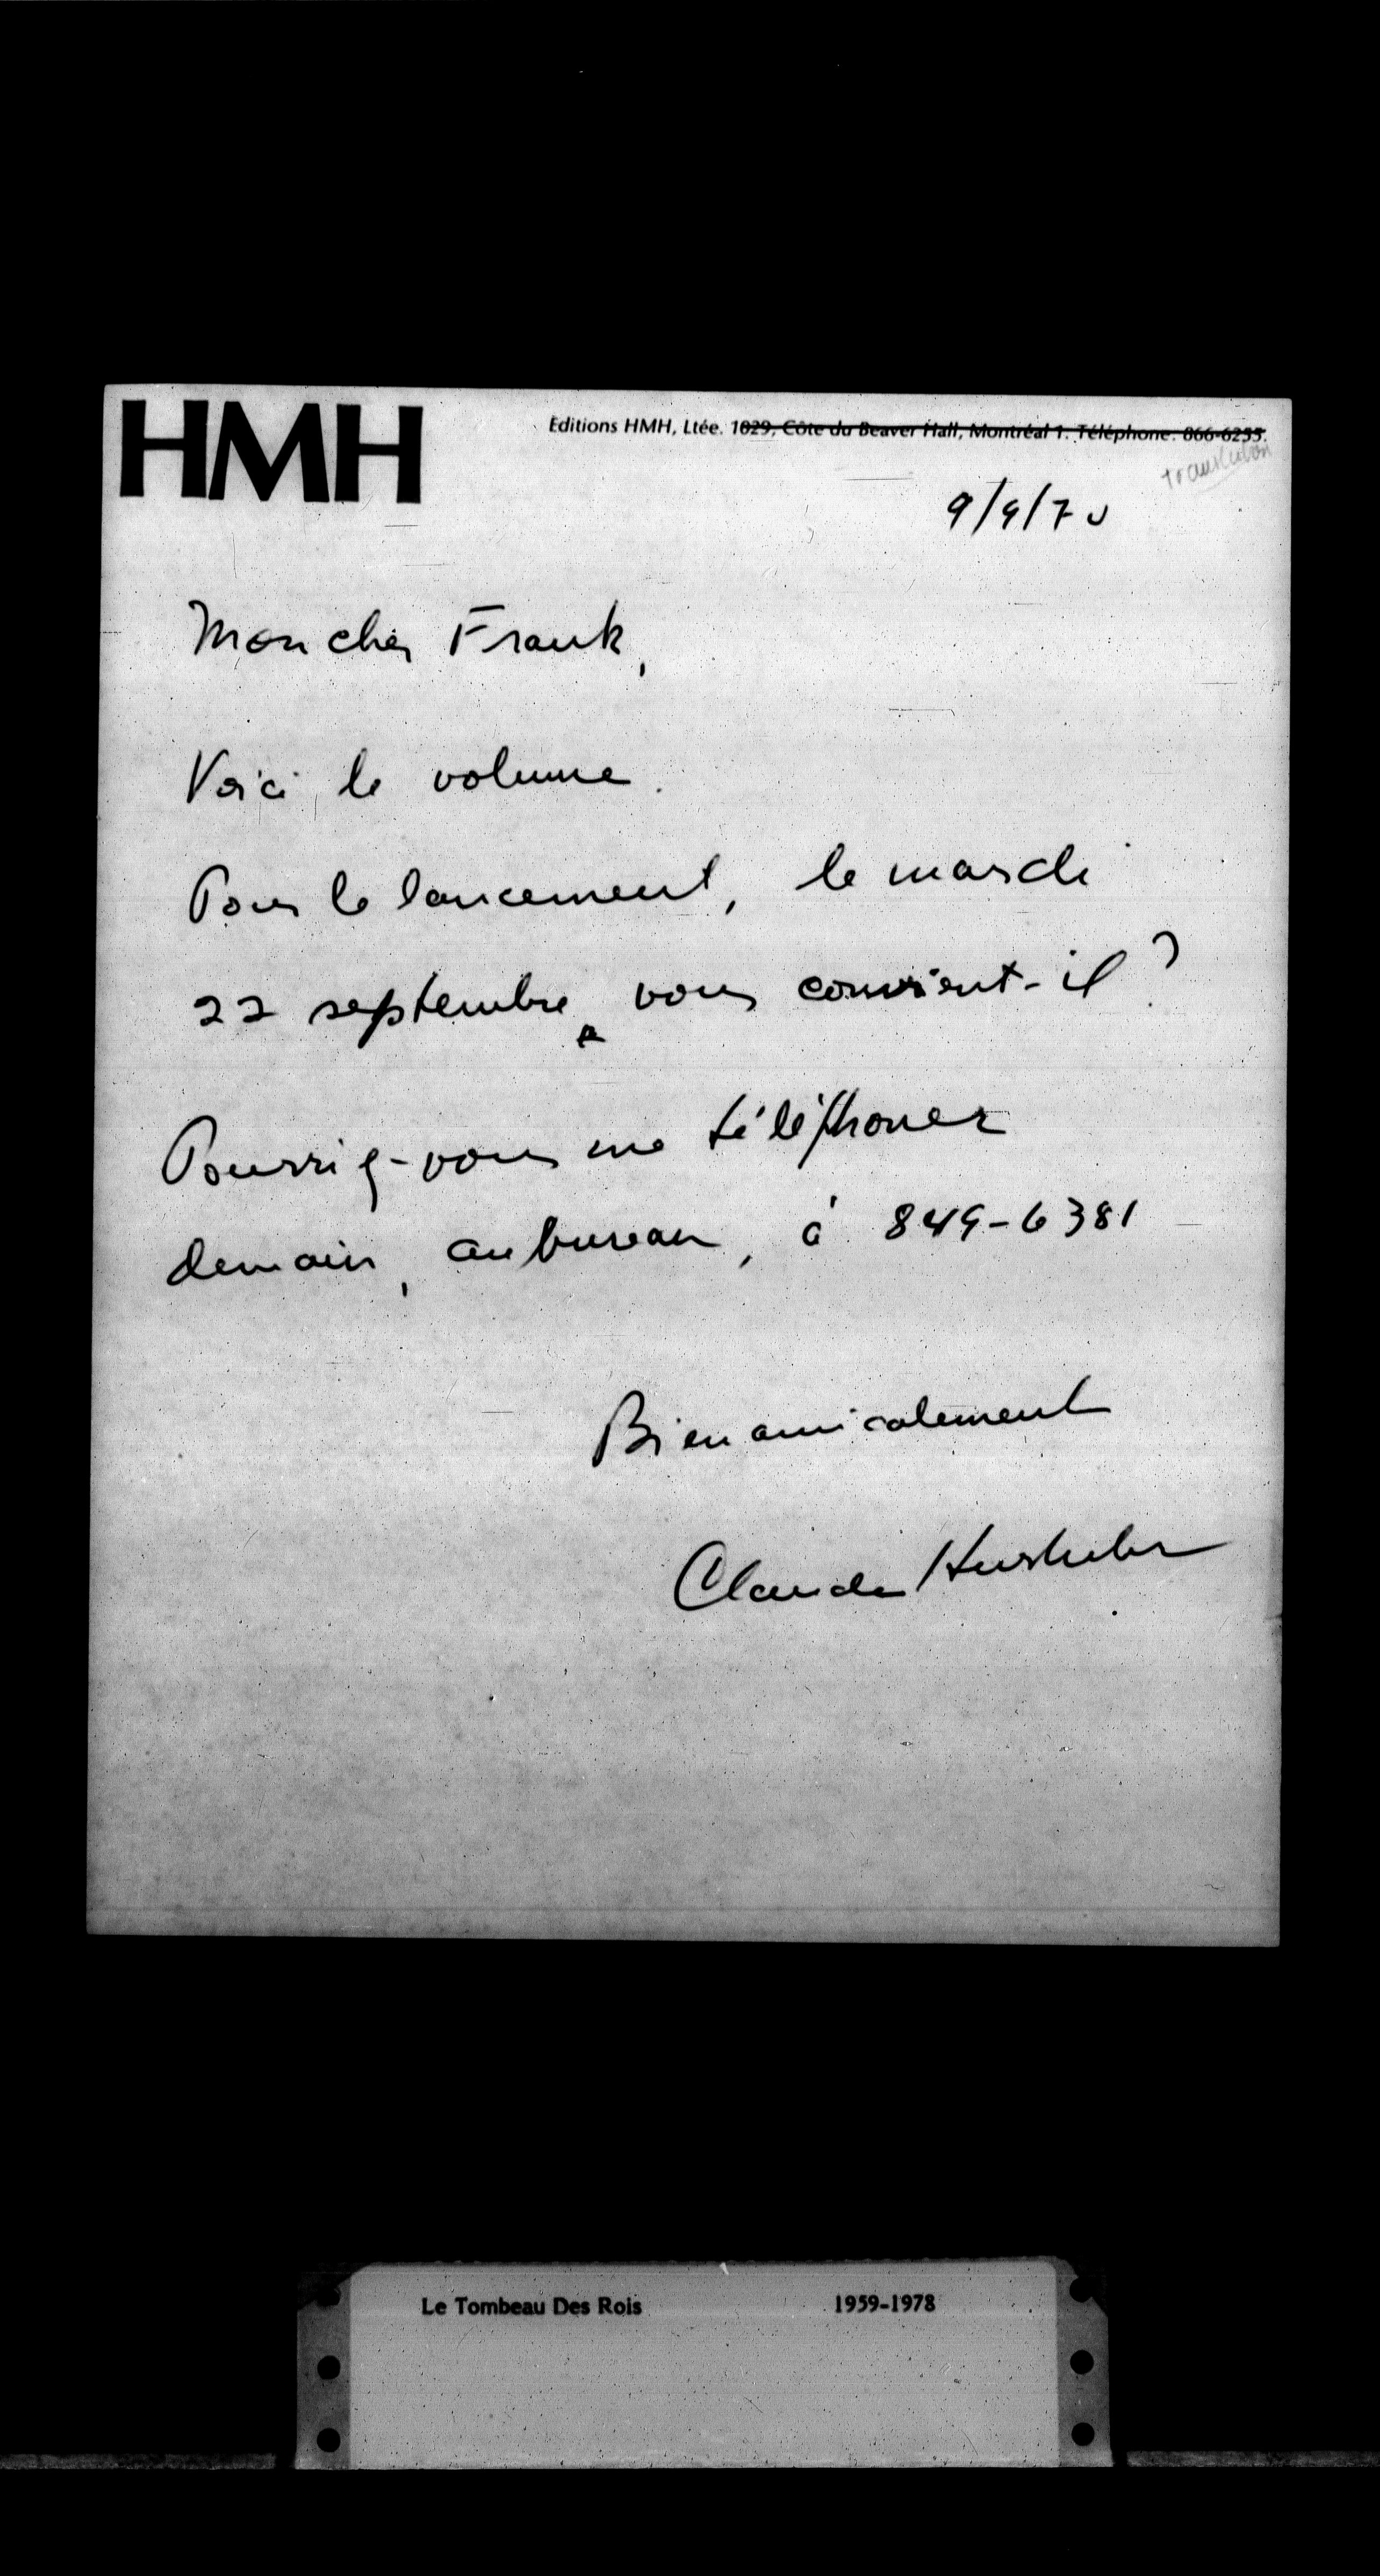 HMH
Editions HMH, Ltée. 1029, Côte du Beaver Hall, Montréal 1. Téléphone: 866-6255.
translation
9/9/70
Mon cher Frank,
Voici le volume.
Pour le lancement, le mardi
22 septembre vous convient-il ?
Pourriez-vous me téléphoner
demain, au bureau, à 849-6381
Bien amicalement
Claude Hurtubise
Le Tombeau Des Rois 1959-1978